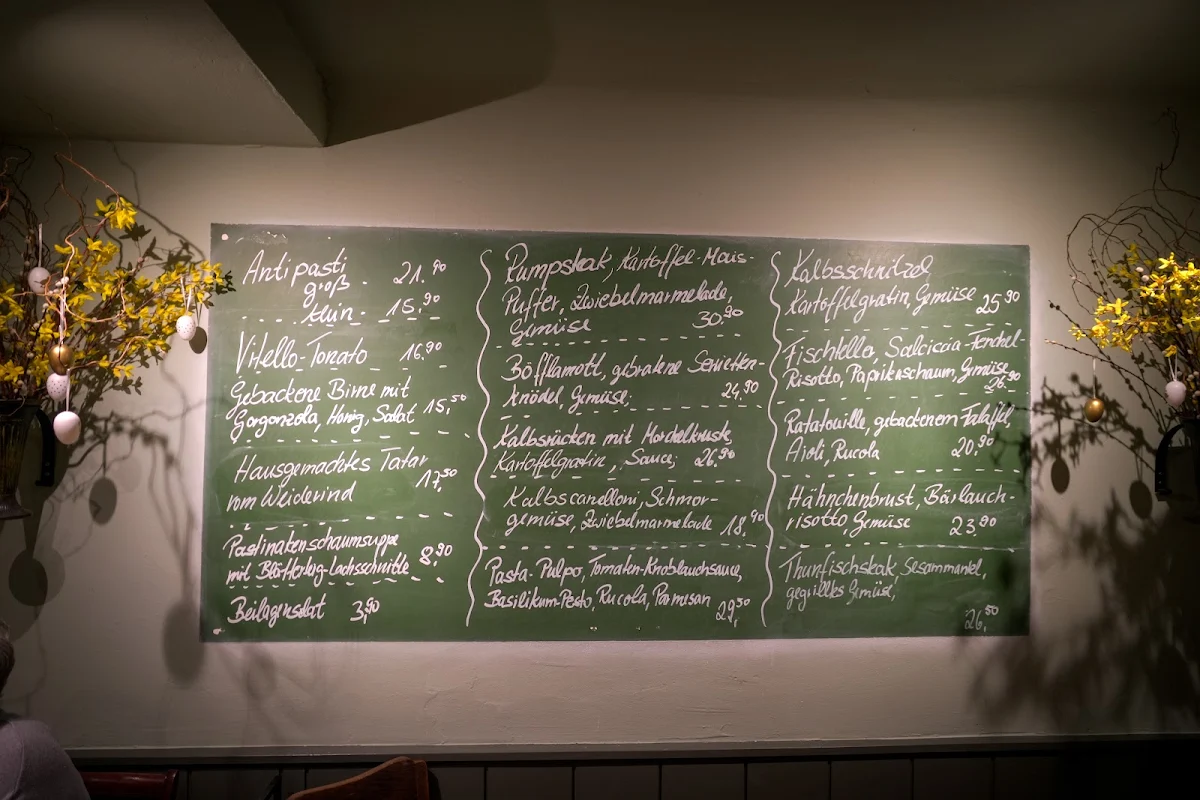 Antipasti
groß - 21.90
klein - 15,90
Vitello-Tonato 16,90
Gebackene Birne mit
Gorgonzola, Honig, Salat 15,50
Hausgemachtes Tatar
vom Weiderind 17,50
Pastinakenschaumsuppe
mit Blätterteig-Lachsschnitte 8,90
Beilagensalat 3,90
Rumpsteak, Kartoffel-Mais-
Puffer, Zwiebelmarmelade,
Gemüse 30.90
Böfflamott, gebratene Servietten-
knödel, Gemüse, 24,90
Kalbsrücken mit Morchelkruste,
Kartoffelgratin, Sauce, 26.90
Kalbscanelloni, Schmor-
gemüse, Zwiebelmarmelade 18,90
Pasta-Pulpo, Tomaten-Knoblauchsauce,
Basilikum-Pesto, Rucola, Parmesan 29,50
Kalbsschnitzel
Kartoffelgratin, Gemüse 25,90
Fischteller, Salciccia-Fenchel-
Risotto, Paprikaschaum, Gemüse
26.90
Ratatouille, gebackenem Falaffel,
Aioli, Rucola 20,90
Hähnchenbrust, Bärlauch-
risotto, Gemüse 23.90
Thunfischsteak, Sesammantel,
gegrilltes Gemüse,
26,50